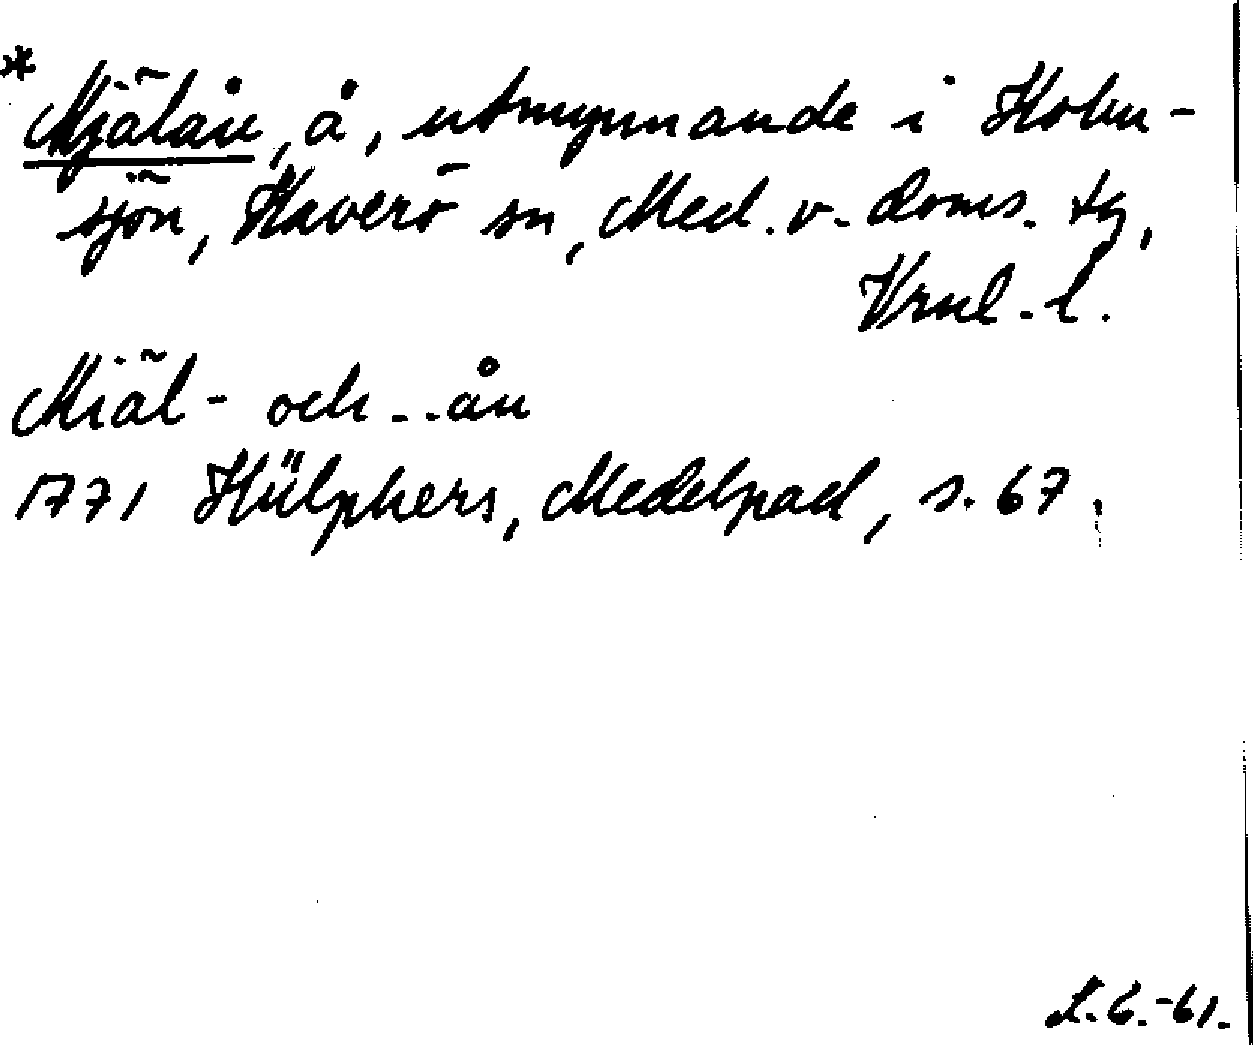 *Mjälån, å, utmynnande i Holm-
sjön, Haverö sn, Med. v. doms. tg,
Vrnl. l.
Miäl- och -- ån
1771 Hülphers, Medelpad, s. 67.
L.G.-61.